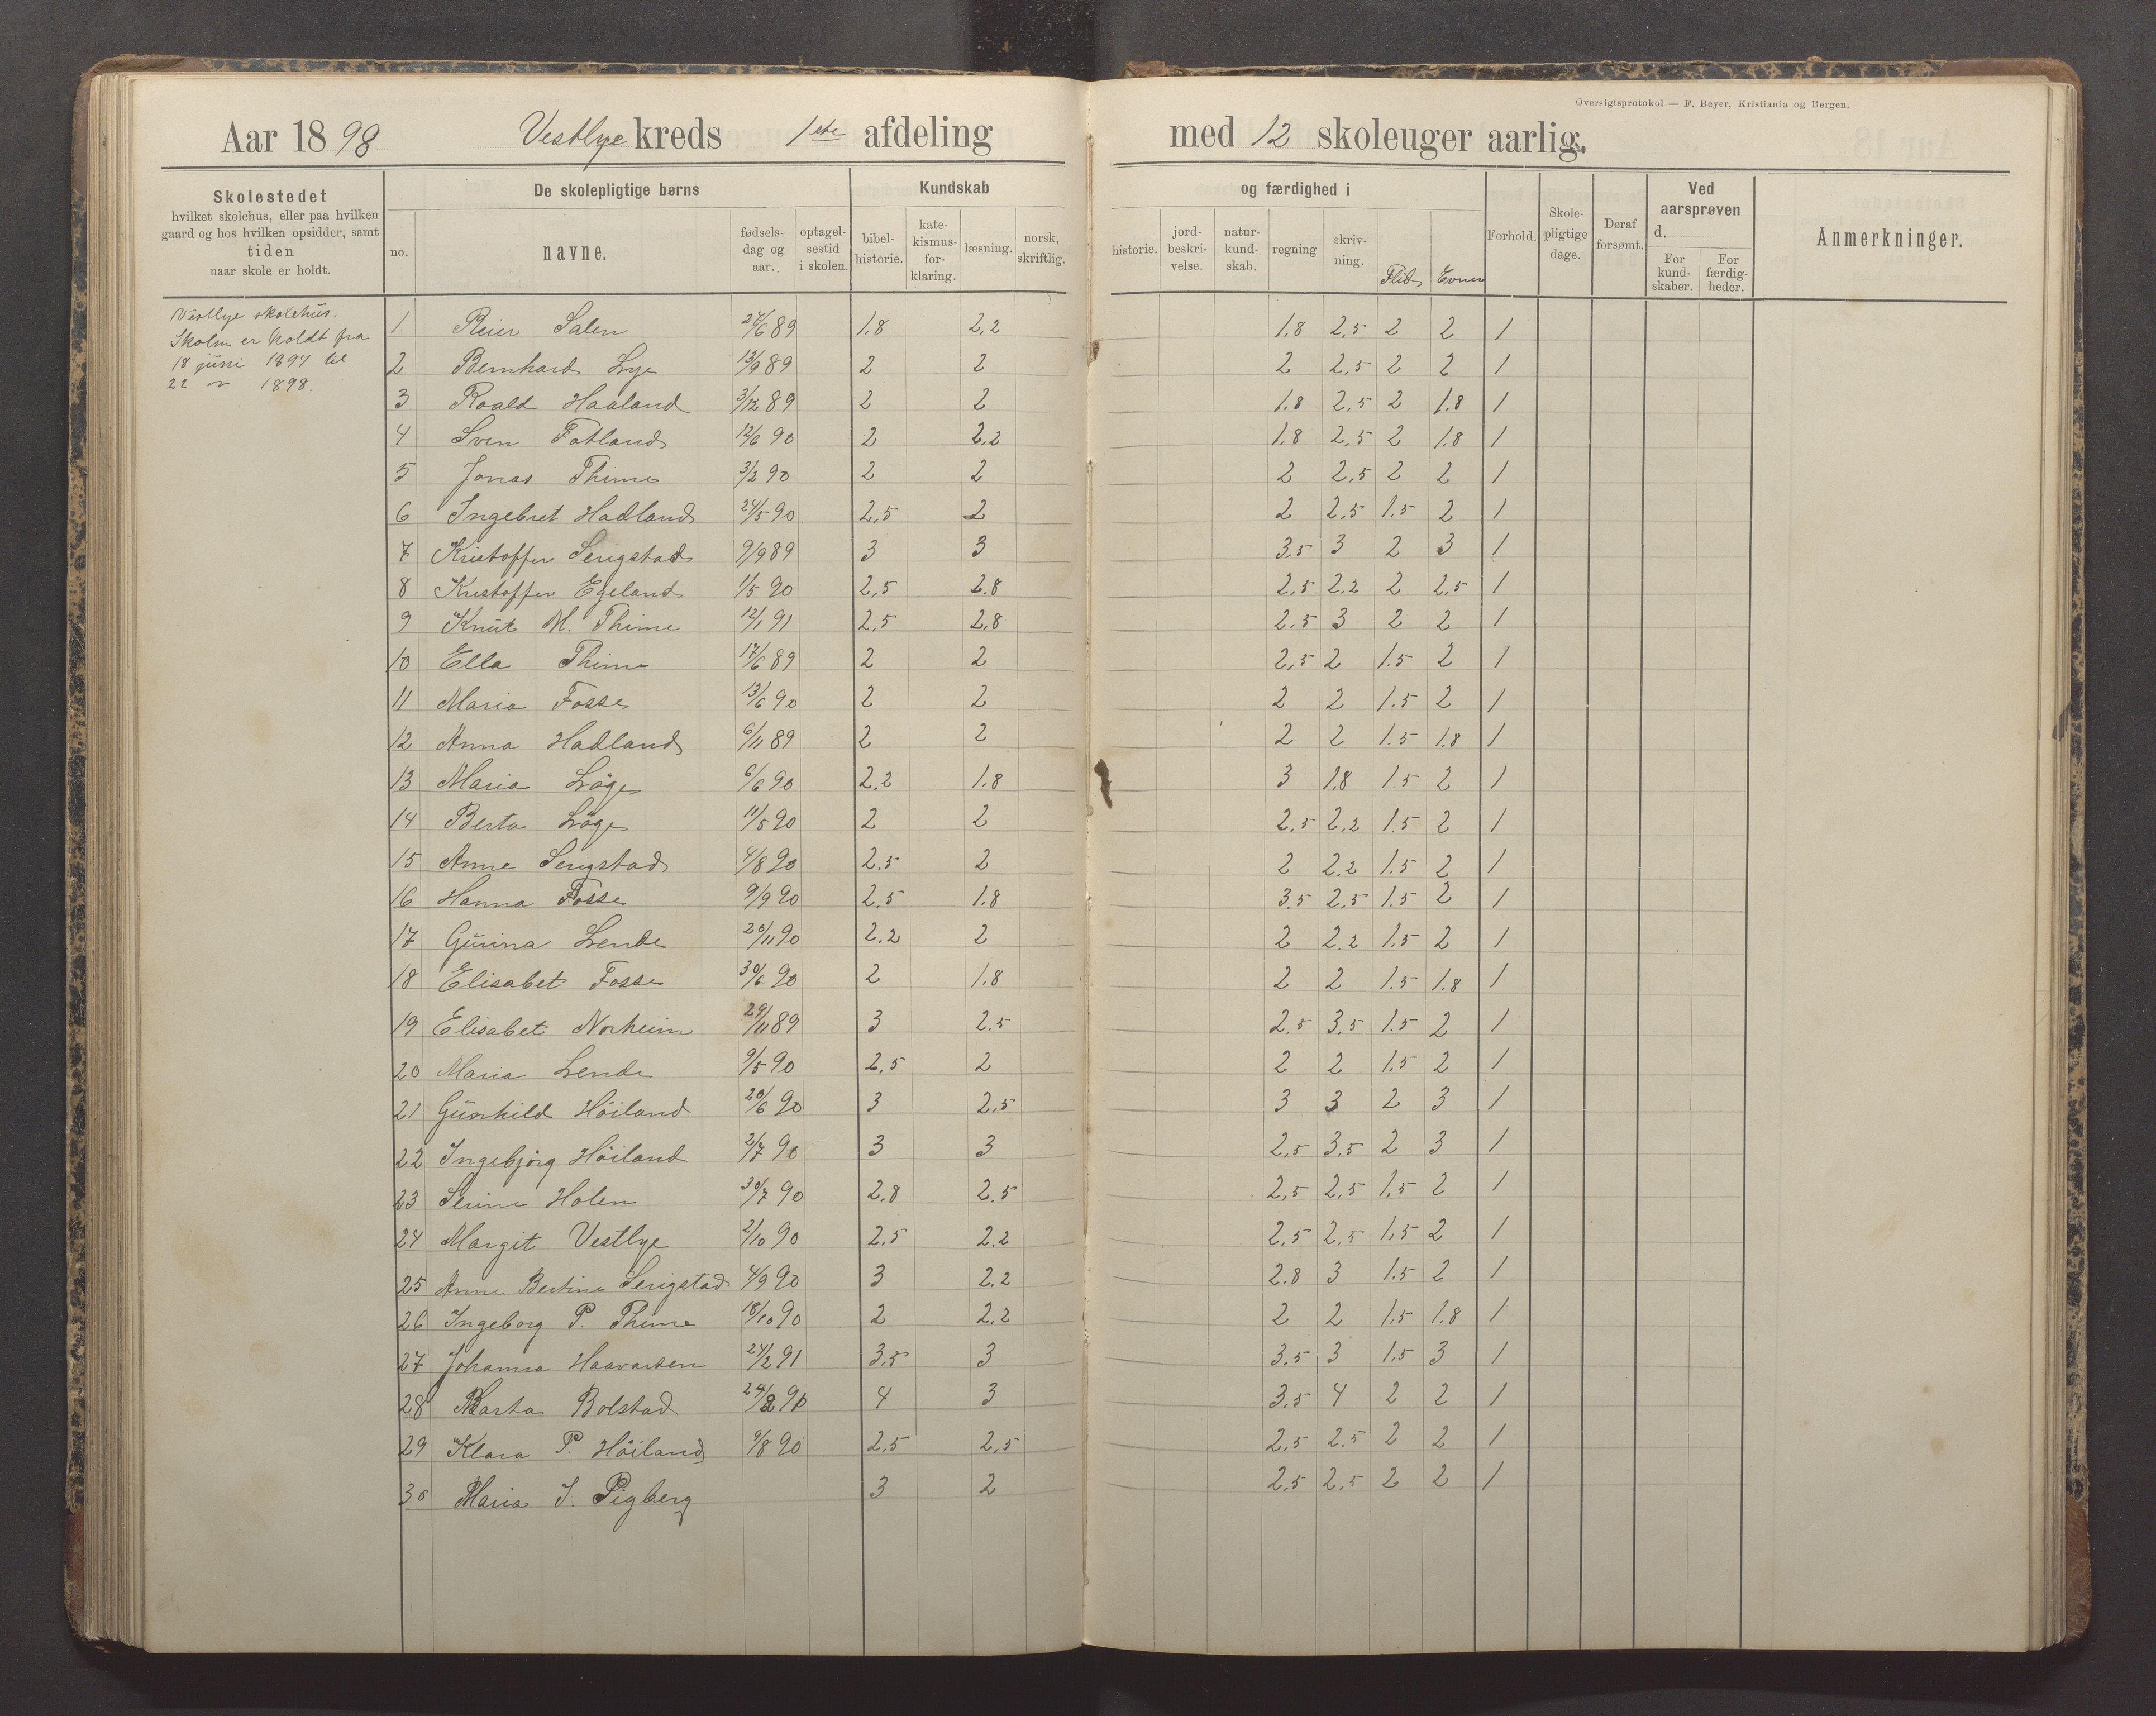 Oversigtsprotokol — F. Beyer, Kristiania og Bergen.
Aar 1898 Vestlye kreds 1ste afdeling med 12 skoleuger aarlig.
Skolestedet
hvilket skolehus, eller paa hvilken
gaard og hos hvilken opsidder, samt
tiden
naar skole er holdt.
De skolepligtige børns
no. navne. fødsels-dag og aar. optagel-sestid i skolen.
Kundskab og færdighed i
bibel-historie. kate-kismus-for-klaring. læsning. norsk, skriftlig. historie. jord-beskri-velse. natur-kund-skab. regning skriv-ning. Flid Evner
Forhold. Skole-pligtige dage. Deraf forsømt.
Ved aarsprøven d.
For kund-skaber. For færdig-heder.
Anmerkninger.
Vestlye skolehus.
Skolen er holdt fra
18 juni 1897 til
22 " 1898.
1 Reier Salen 24/6 89 1,8 2,2 1,8 2,5 2 2 1
2 Bernhard Lye 13/9 89 2 2 2 2,5 2 2 1
3 Roald Haaland 3/12 89 2 2 1,8 2,5 2 1,8 1
4 Sven Fotland 12/6 90 2 2,2 1,8 2,5 2 1,8 1
5 Jonas Thime 3/2 90 2 2 2 2,5 2 2 1
6 Ingebret Hadland 24/5 90 2,5 2 2 2,5 1.5 2 1
7 Kristoffer Serigstad 9/9 89 3 3 3,5 3 2 3 1
8 Kristoffer Egeland 11/5 90 2,5 2.8 2,5 2.2 2 2,5 1
9 Knut M. Thime 12/1 91 2,5 2,8 2.5 3 2 2 1
10 Ella Thime 17/6 89 2 2 2,5 2 1.5 2 1
11 Maria Fosse 13/6 90 2 2 2 2 1.5 2 1
12 Anna Hadland 6/11 89 2 2 2 2 1.5 1.8 1
13 Maria Löge 6/6 90 2,2 1.8 3 1,8 1.5 2 1
14 Berta Löge 11/5 90 2 2 2.5 2,2 1.5 2 1
15 Anne Serigstad 4/8 90 2.5 2 2 2.2 1.5 2 1
16 Hanna Fosse 9/9 90 2,5 1.8 3.5 2.5 1.5 2 1
17 Gurina Lende 20/11 90 2.2 2 2 2.2 1.5 2 1
18 Elisabet Fosse 30/6 90 2 1.8 2 2 1.5 1.8 1
19 Elisabet Norheim 29/11 89 3 2.5 2.5 3.5 1.5 2 1
20 Maria Lende 9/5 90 2,5 2 2 2 1.5 2 1
21 Gunhild Höiland 20/6 90 3 2,5 3 3 2 3 1
22 Ingebjörg Höiland 2/7 90 3 3 2,5 3,5 2 3 1
23 Serine Holen 30/7 90 2,8 2.5 2,5 2,5 1,5 2 1
24 Margit Vestlye 2/10 90 2.5 2.2 2.5 2.5 1,5 2 1
25 Anne Bertine Serigstad 4/9 90 3 2,2 2.8 3 1.5 2 1
26 Ingeborg P. Thime 18/10 90 2 2,2 2 2 1.5 1.8 1
27 Johanna Haavarsen 24/2 91 3,5 3 3.5 3 1.5 3 1
28 Marta Bolstad 24/8 90 4 3 3.5 4 2 2 1
29 Klara P. Höiland 9/8 90 2,5 2,5 2,5 2.5 2 2 1
30 Maria J. Pigberg 3 2 2.5 2,5 2 2 1